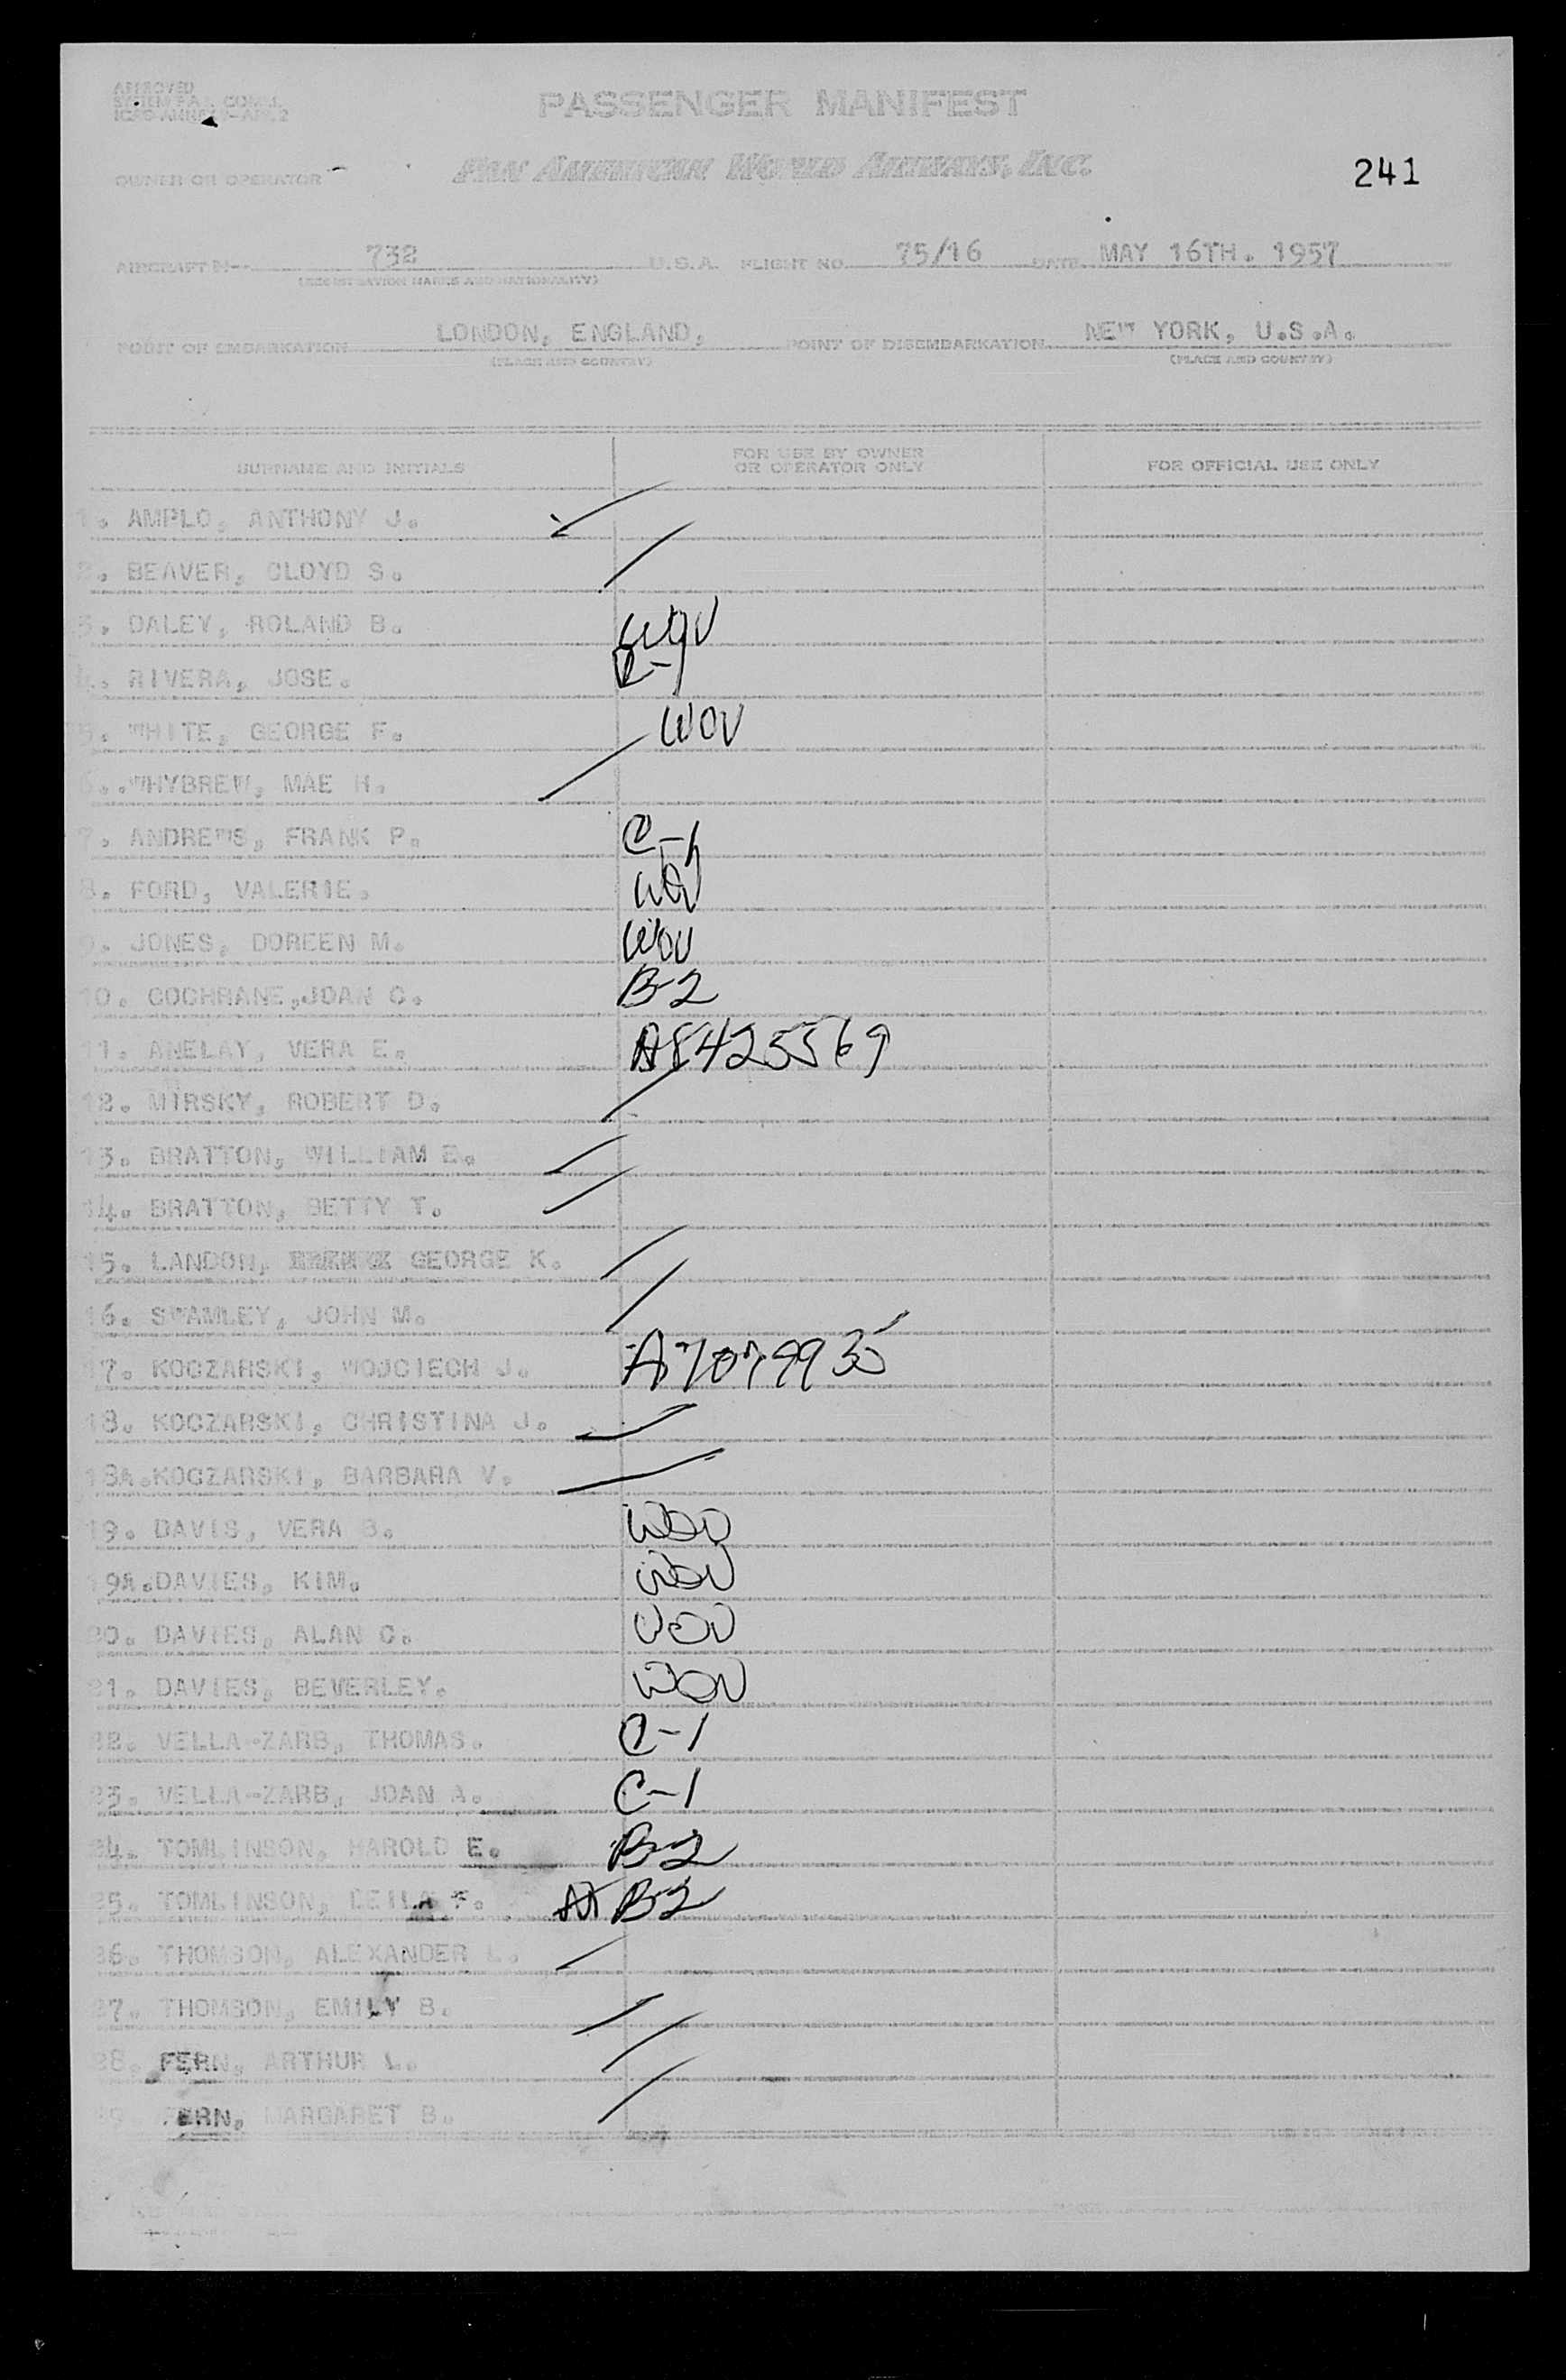 APPROVED
PASSENGER MANIFEST
PAN AMERICAN WORLD AIRWAYS, INC.
OWNER OR OPERATOR
241
AIRCRAFT 732 U.S.A. FLIGHT NO. 75/16 DATE MAY 16TH. 1957
(REGISTRATION MARKS AND NATIONALITY)
POINT OF EMBARKATION LONDON, ENGLAND, POINT OF DISEMBARKATION NEW YORK, U.S.A.
(PLACE AND COUNTRY) (PLACE AND COUNTRY)
SURNAME AND INITIALS FOR USE BY OWNER OR OPERATOR ONLY FOR OFFICIAL USE ONLY
1. AMPLO, ANTHONY J.
2. BEAVER, CLOYD S.
3. DALEY, ROLAND B. WOV
4. RIVERA, JOSE.
5. WHITE, GEORGE F. WOV
6. WHYBREW, MAE H.
7. ANDREWS, FRANK P. C-1
8. FORD, VALERIE. WOV
9. JONES, DOREEN M. WOV
10. COCHRANE, JOAN C. B-2
11. ANELAY, VERA E. A8425569
12. MIRSKY, ROBERT D.
13. BRATTON, WILLIAM E.
14. BRATTON, BETTY T.
15. LANDON, GEORGE K.
16. SWAMLEY, JOHN M.
17. KOCZARSKI, WOJCIECH J.
18. KOCZARSKI, CHRISTINA J.
18A. KOCZARSKI, BARBARA V.
19. DAVIS, VERA B. WOV
19A. DAVIES, KIM. WOV
20. DAVIES, ALAN C. WOV
21. DAVIES, BEVERLEY. WOV
22. VELLA-ZARB, THOMAS. C-1
23. VELLA-ZARB, JOAN A. C-1
24. TOMLINSON, HAROLD E. B-2
25. TOMLINSON, LEILA F. B-2
26. THOMSON, ALEXANDER L.
27. THOMSON, EMILY B.
28. FERN, ARTHUR L.
29. FERN, MARGARET B.